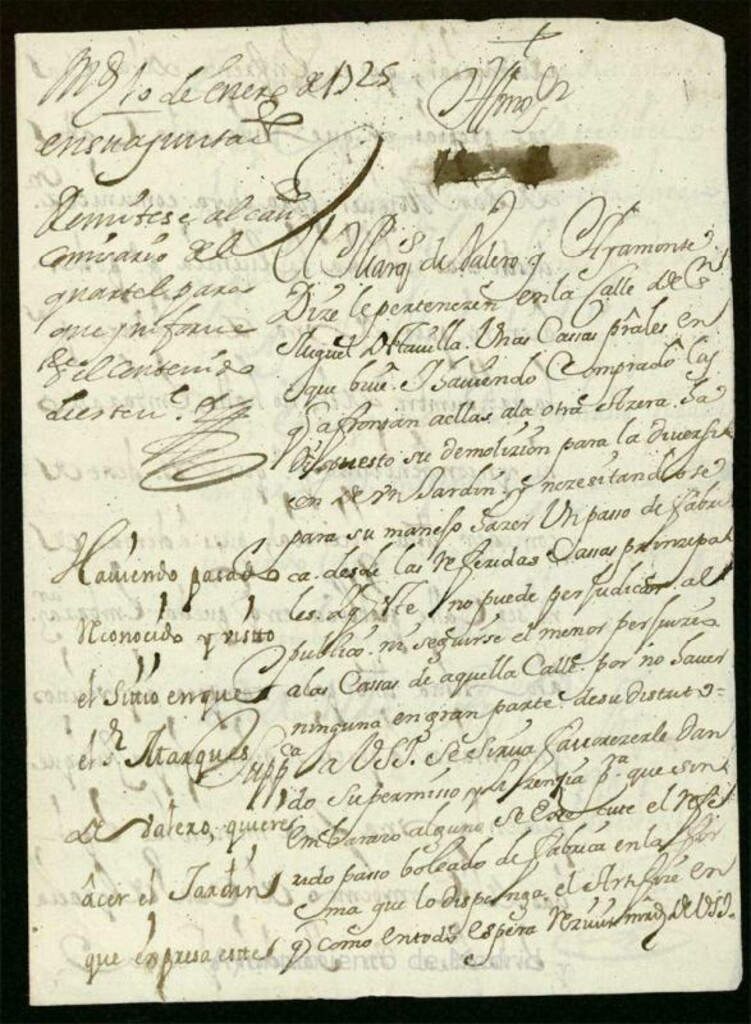 M.d 10 de Enero de 1725
en su ajuntam.to
Remitese al cau.o
comisario del
quartel para
que ynforme
Sre el contenido
de este
Haviendo pasado
Reconocido y visto
el Sitio en que
el S.r Marques
De Valero, quiere
açer el Jardin
que expresa este
Yllmo S.r
El Marq.s de Valero y Ayamonte
Dize le pertenezen en la Calle de S.n
Miguel Unas Cassas prâles en
que bive. I haviendo Comprado las
q afrontan a ellas. a la otra Azera. ha
dispuesto su demolizion para la diversi
on de Vn Jardin, y nezesitandose
para su manejo hazer Un passo de fabri
ca. desde las Referidas Cassas prinzipa
les. Lo q.e no puede perjudicar al
publico. ni seguirse el menor perjuizio
a las Cassas de aquella Calle. por no haver
ninguna en gran parte de su distrito=
Supp.ca a VSI. se sirva favorezerle Dan
do su permisso y lizenzia p.ra que sin
embarazo alguno se Execute el Refe
rido passo boleado de fabrica en la for
ma que lo disponga. el Artifize en
q como en todo espera Rezivir mrd de VSI.
Ayuntamiento de Madrid